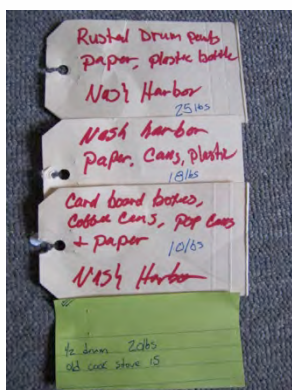 Rusted Drum parts
paper, plastic bottle
Nash Harbor
25lbs
Nash harbor
paper, Cans, plastic
18lbs
Card board boxes,
Coffee Cans, pop Cans
+ paper
10lbs
Nash Harbor
1/2 drum 20lbs
old cook stove 15